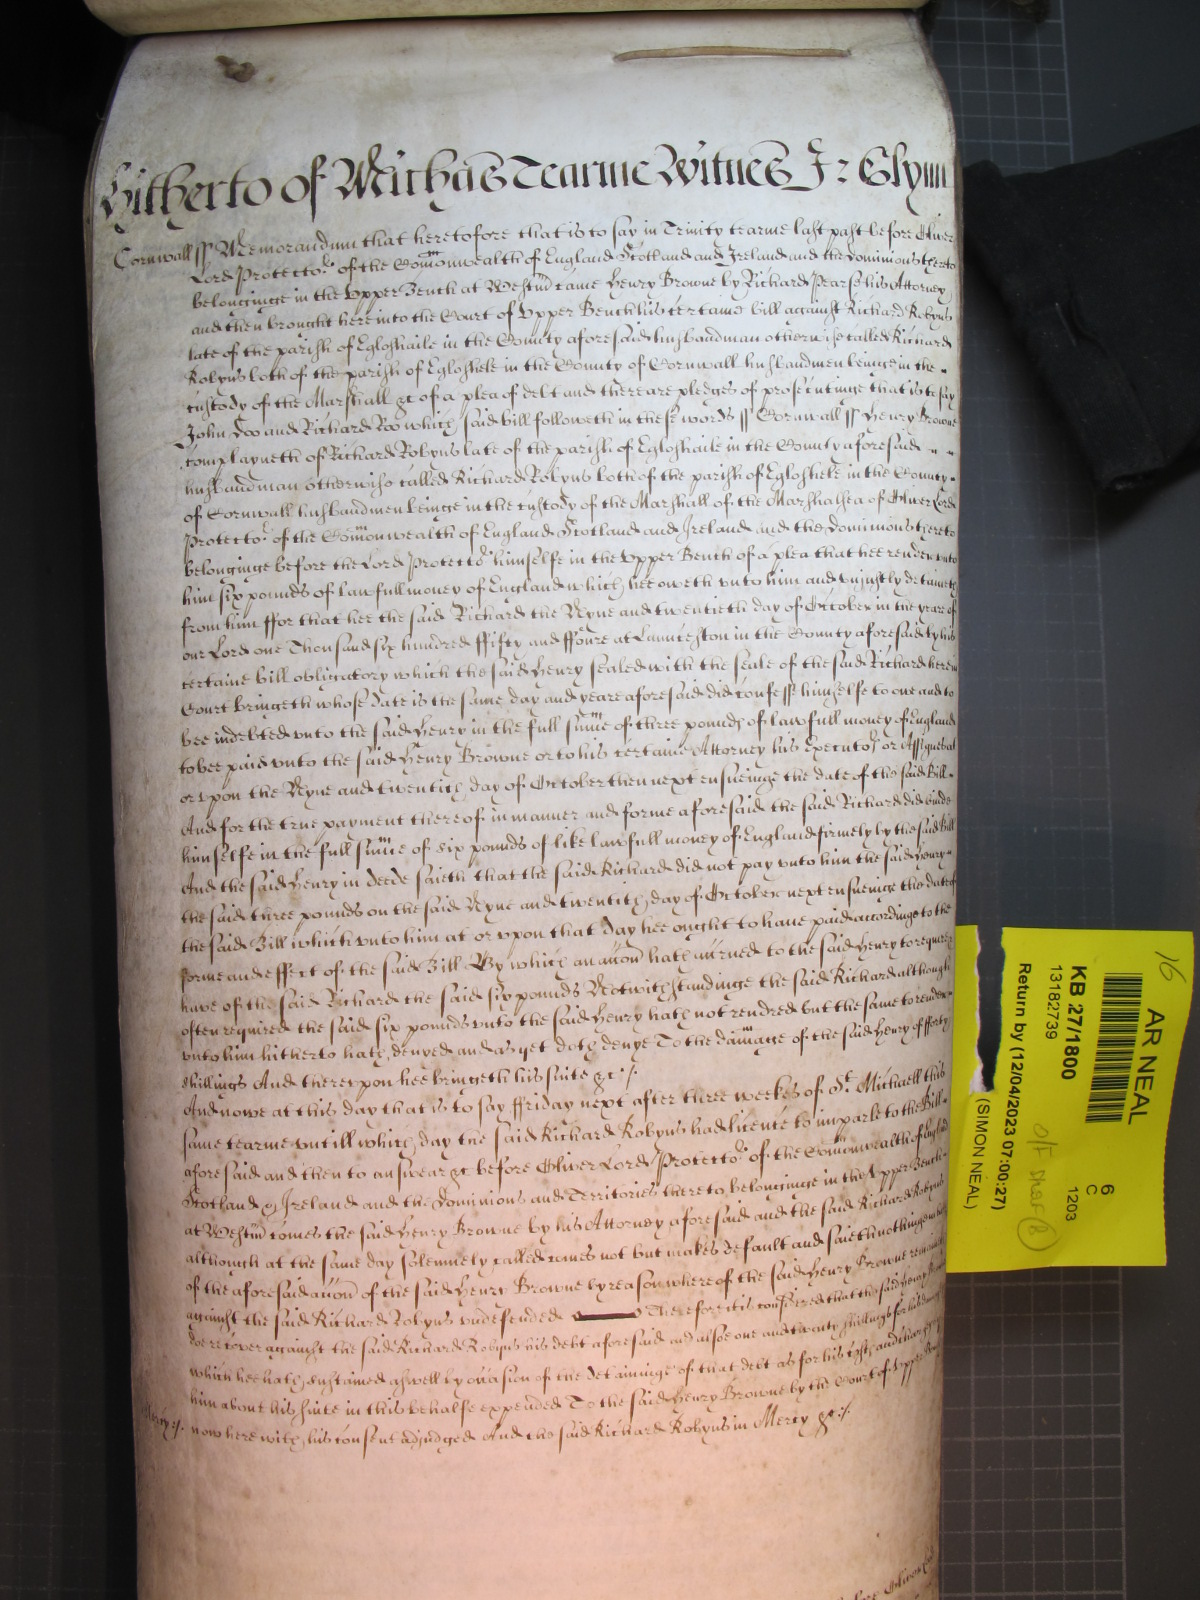 Hitherto of Michas Tearme Witnes J: Glynn
Cornwall ss Memorandum that heretofore that is to say in Trinity tearme last past before Oliver
Lord Protector of the Comonwealth of England Scotland and Ireland and the Dominions thereto
belonginge in the Upper Bench at Westm came Henry Browne by Richard Pearse his Attorney
and then brought here into the Court of Upper Bench his certaine bill against Richard Robyns
late of the parish of Egloshaile in the County aforesaid husbandman otherwise called Richard
Robyns both of the parish of Egloshele in the County of Cornwall husbandmen beinge in the
custody of the Marshall &c of a plea of debt and there are pledges of prosecutinge that is to say
John Doo and Richard Roo which said bill followeth in these words ss Cornwall ss Henry Browne
complayneth of Richard Robyns late of the parish of Egloshaile in the County aforesaid
husbandman otherwise called Richard Robyns both of the parish of Egloshele in the County
of Cornwall husbandmen beinge in the custody of the Marshall of the Marshalsea of Oliver Lord
Protector of the Comonwealth of England Scotland and Ireland and the Dominions thereto
belonginge before the Lord Protector himselfe in the Upper Bench of a plea that hee render unto
him six pounds of lawfull money of England which hee oweth unto him and unjustly detaineth
from him ffor that hee the said Richard the Nyne and twentieth day of October in the yeare of
our Lord one Thousand six hundred ffifty and ffoure at Launceston in the County aforesaid by his
certaine bill obligatory which the said Henry sealed with the seale of the said Richard here in
Court bringeth whose date is the same day and yeare aforesaid did confess himselfe to owe and to
bee indebted unto the said Henry in the full sume of three pounds of lawfull money of England
to bee paid unto the said Henry Browne or to his certaine Attorney his Executors or Assignes at
or upon the Nyne and twentith day of October then next ensueinge the date of the said Bill
And for the true payment thereof in manner and forme aforesaid the said Richard did binde
himselfe in the full sume of six pounds of like lawfull money of England firmely by the said Bill
And the said Henry in deede saieth that the said Richard did not pay unto him the said Henry
the said three pounds on the said Nyne and twentith day of October next ensueinge the date of
the said Bill which unto him at or upon that day hee ought to have paid accordinge to the
forme and effect of the said Bill By which an accon hath accrued to the said Henry to require &
have of the said Richard the said six pounds Notwithstandinge the said Richard although
often required the said six pounds unto the said Henry hath not rendred but the same to render
unto him hitherto hath denyed and as yet doth denye To the damage of the said Henry of fforty
shillings And thereupon hee bringeth his suite &c
And nowe at this day that is to say ffriday next after three weekes of St Michaell this
same tearme untill which day the said Richard Robyns had licence to imparle to the Bill
aforesaid and then to answear &c before Oliver Lord Protector of the Comonwealth of England
Scotland & Ireland and the Dominions and Territories thereto belonginge in the Upper Bench
at Westm comes the said Henry Browne by his Attorney aforesaid and the said Richard Robyns
although at the same day solemnely called comes not but makes default and saieth nothinge in barr
of the aforesaid accon of the said Henry Browne by reason whereof the said Henry Browne remaineth
against the said Richard Robyns undefended Therefore it is considered that the said Henry Browne
doe recover against the said Richard Robyns his debt aforesaid and alsoe one and twenty shillings for his damages
which hee hath sustained aswell by occasion of the detaininge of that debt as for his costs and charges by
him about his suite in this behalfe expended To the said Henry Browne by the Court of Upper Bench
Mercy now here with his consent adjudged And the said Richard Robyns in Mercy &c
16
AR NEAL
6
C
1203
KB 27/1800
131823739
Return by (12/04/2023 07:00:27)
(SIMON NEAL)